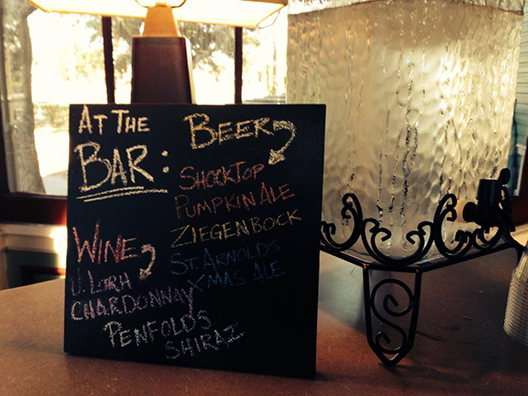 AT THE
BAR:
BEER
SHOCKTOP
PUMPKIN ALE
ZIEGENBOCK
ST. ARNOLDS
XMAS ALE
WINE
CHARDONNAY
PENFOLDS
SHIRAZ